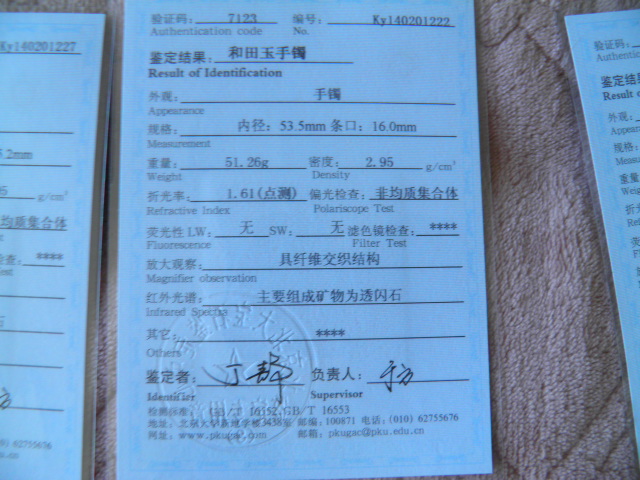 验证码: 7123 编号: Ky140201222
Authentication code No.
鉴定结果: 和田玉手镯
Result of Identification
外观: 手镯
Appearance
规格: 内径: 53.5mm 条口: 16.0mm
Measurement
重量: 51.26g 密度: 2.95 g/cm³
Weight Density
折光率: 1.61(点测) 偏光检查: 非均质集合体
Refractive Index Polariscope Test
荧光性 LW: 无 SW: 无 滤色镜检查: ****
Fluorescence Filter Test
放大观察: 具纤维交织结构
Magnifier observation
红外光谱: 主要组成矿物为透闪石
Infrared Spectra
其它: ****
Others
鉴定者: 丁静 负责人:
Identifier Supervisor
检测标准: GB/T 16552,GB/T 16553
地址: 北京大学 邮编: 100871 电话: (010) 62755676
网址: www.pkugac.com 邮箱: pkugac@pku.edu.cn
Ky140201227
.2mm
g/cm³
均质集合体
检查: ****
62755676
验证码:
Authenti
鉴定结果
Result o
外观:
Appearan
规格:
Measure
重量:
Weight
折光
Refra